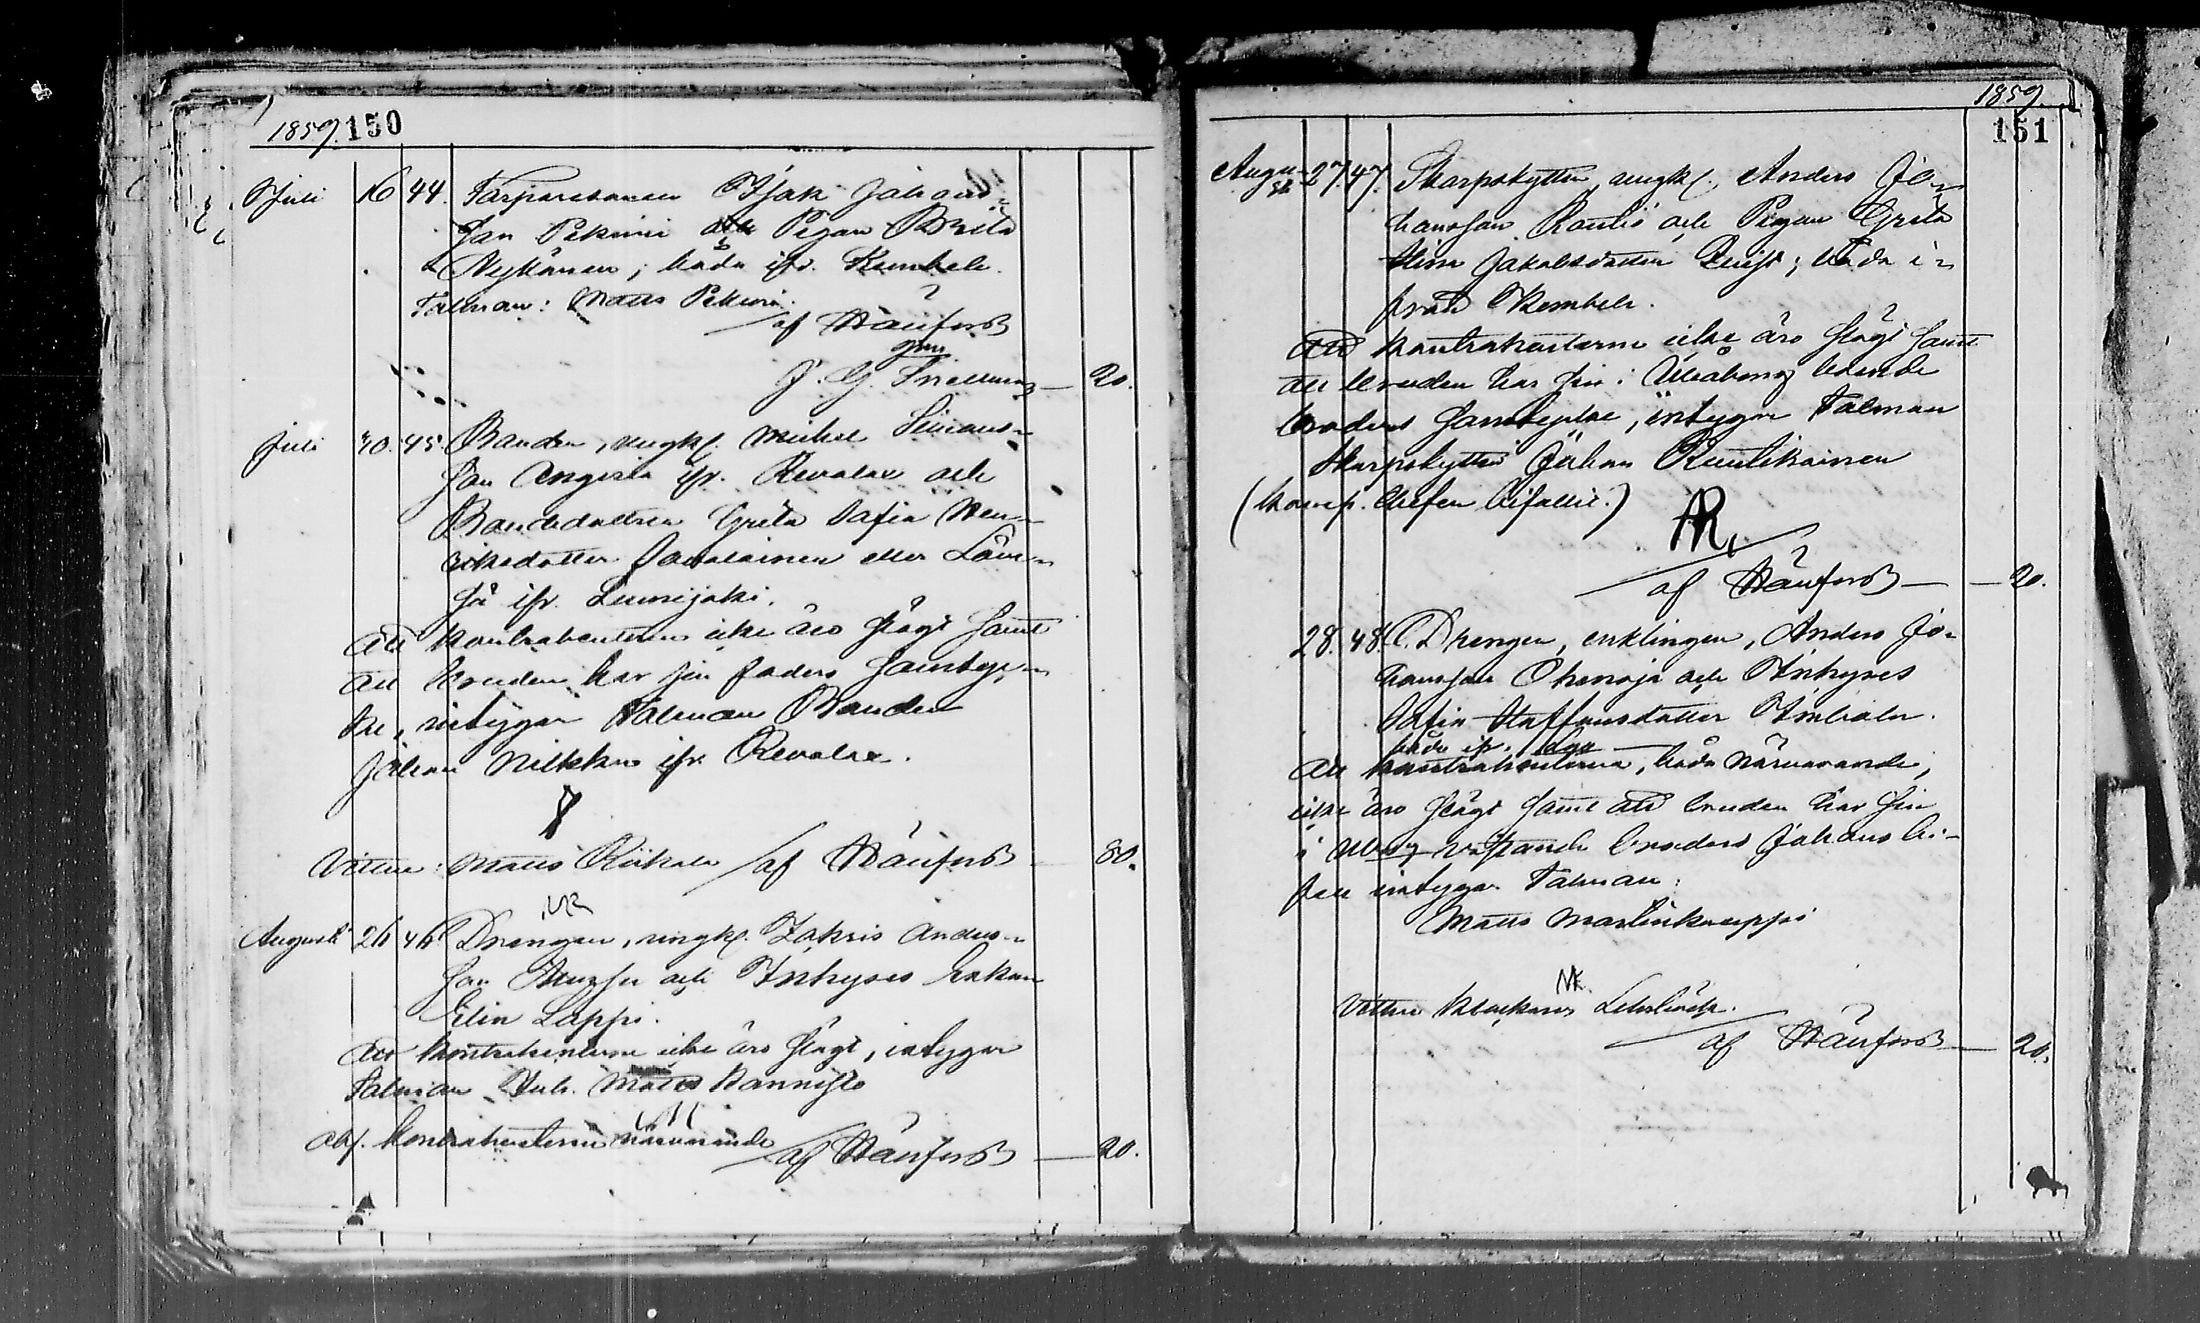 1859. 150
Juli 16 44. Torparesonen Isak Johans-
son Pekuri och Pigan Brita
Nykänen; båda ifr. Kembele.
Talman: Matts Pekuri.
af Hällfors
gm
J. G. Snellman — 20.
Juli 30. 45. Bonden, ungk. Michel Simons-
son Angerla ifr. Revolax och
Bondedottren Greta Sofia Hen-
riksdotter Savolainen eller Läm-
så ifr. Lumijoki.
Att kontrahenterne icke äro skägt samt
att bruden har sin faders samtyc-
ke, intygar Talman Bonden
Johan Nikkus ifr. Revolax.
Vittne: Matts Rükola af Hällfors — 80.
Augusti 26 46 Drängen, ungk. Zakris Anders-
son och Inhyses Enkan
Elin Lappi.
Att kontrahenterne icke äro skägt, intygar
Talman Inh. Matts Kannisto
Obs. kontrahenterne närvarande
af Hällfors — 20.
1859.
151
Augu-
sti 27. 47. Skarpskytten, ungk., Anders Jo-
hansson Rautio och Pigan Greta
Stina Jakobsdotter Qvist; båda i-
från Kembele.
Att kontrahenterne icke äro skägt samt
att bruden har sin i Uleåborg boende
broders samtycke, intygar Talman
Skarpskytten Johan Ruutikainen
(Komp. Chefen bifallit.)
AR
af Hällfors — 20.
28. 48. Drengen, enklingen, Anders Jo-
hansson Ohenoja och Inhyses
Sofia Staffansdotter
båda ifr.
Att kontrahenterna, båda närvarande,
icke äro skägt samt att bruden har sin
i Uleåborg vistande broders Johans bi-
fall intygar Talman:
Matts Martinkauppi
Vittne Klockaren
af Hällfors — 20.